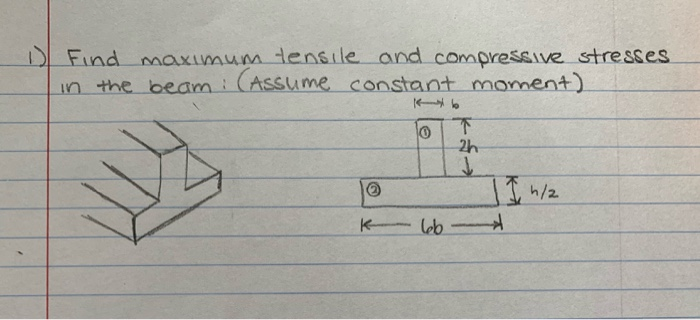 1) Find maximum tensile and compressive stresses
in the beam : (Assume constant moment)
b
①
2h
②
h/2
6b